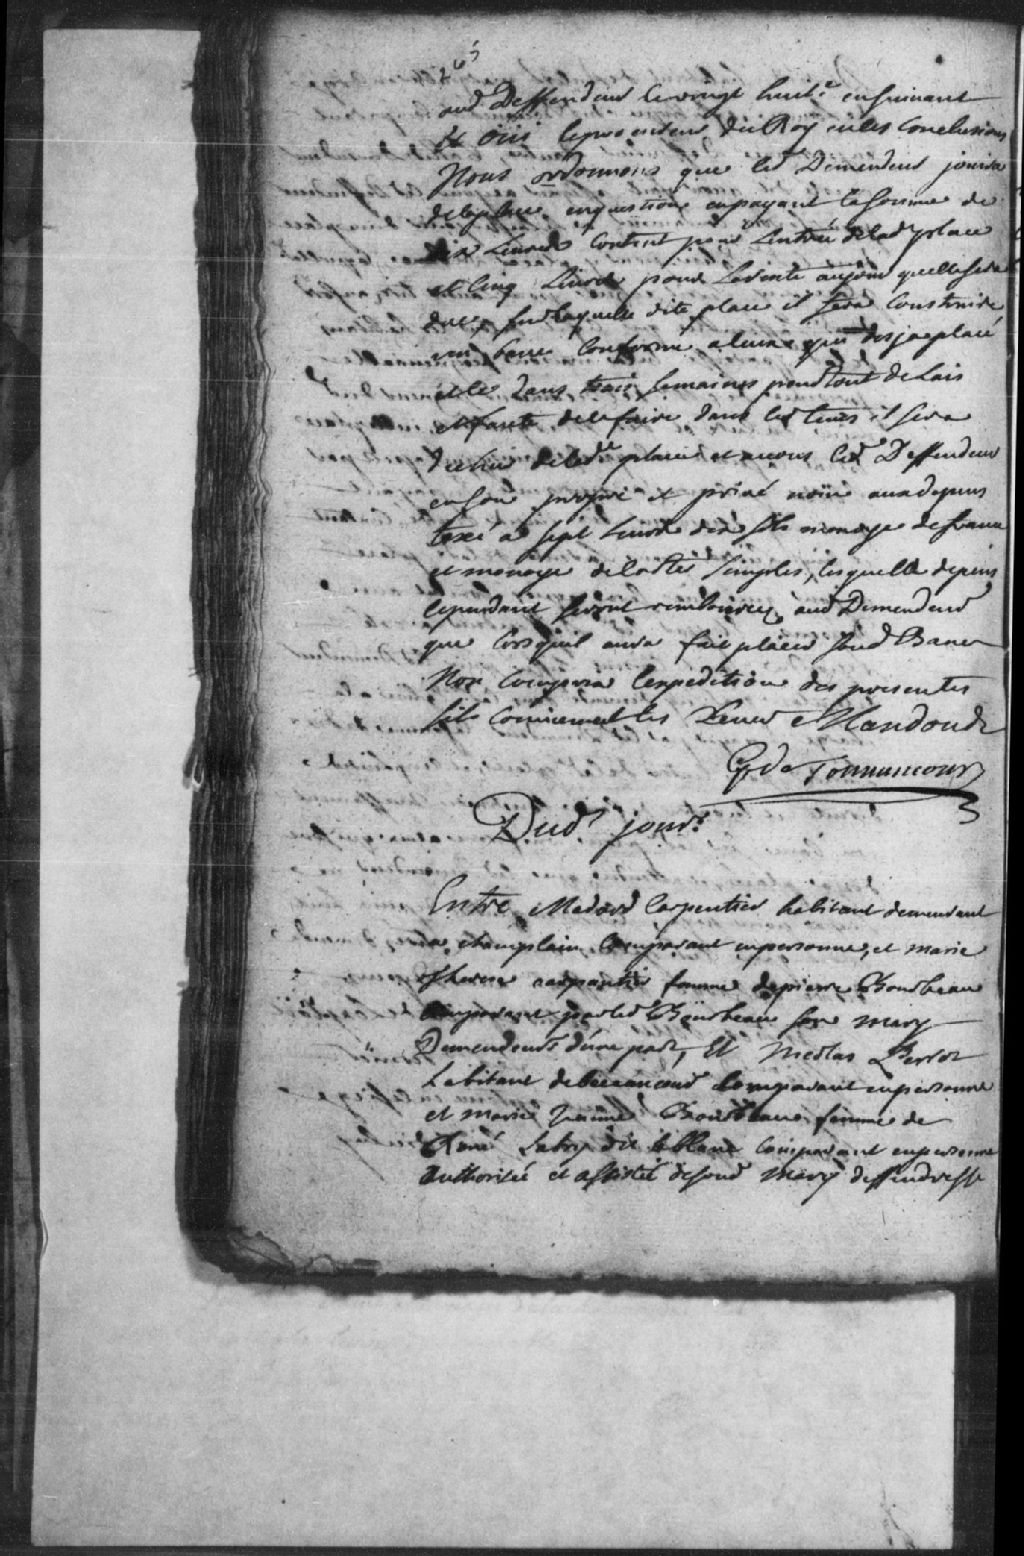 263
aud Deffendeur le vingt huit.e ensuivant
Et Oüi le procureur du Roy en ses Conclusions
Nous ordonnons que led Demendeur jouira
de la place en question en payant la somme de
dix Livres Contant pour L'entrée de lad place
et Cinq Livres pour la rente au jour quelle sera
sur laquelle dite place il sera Construire
un banc Conforme a ceux qui desja placé
et le dans trois semaines pour tout delais
et faute de le faire dans led tems il sera
déchu de lad place et avons led Deffendeur
en son propre et privé nom aux depens
taxé a sept Livres dix sols monoye de france
et monoye de Cartes simples, lesquelle depens
cependant seront remboursez aud Demendeur
que lorsquil aura fait placer sond Banc
Non Compris l'expedition des presentes
sils Conviennent les Mandons
G de Tonnancour
Dud.t jour
Entre Medard Carpentier habitant demeurant
a Champlain Comparant en personne, et marie
Therese carpentier femme de pierre Bourbeau
Comparant par led Bourbeau son mary
Demendeurs d'une part, Et Nicolas Perrot
habitant de becancour Comparant en personne
et marie Jeanne Bourbeau femme de
René Comparant en personne
authorisée et assistée de sond Mary deffendresse